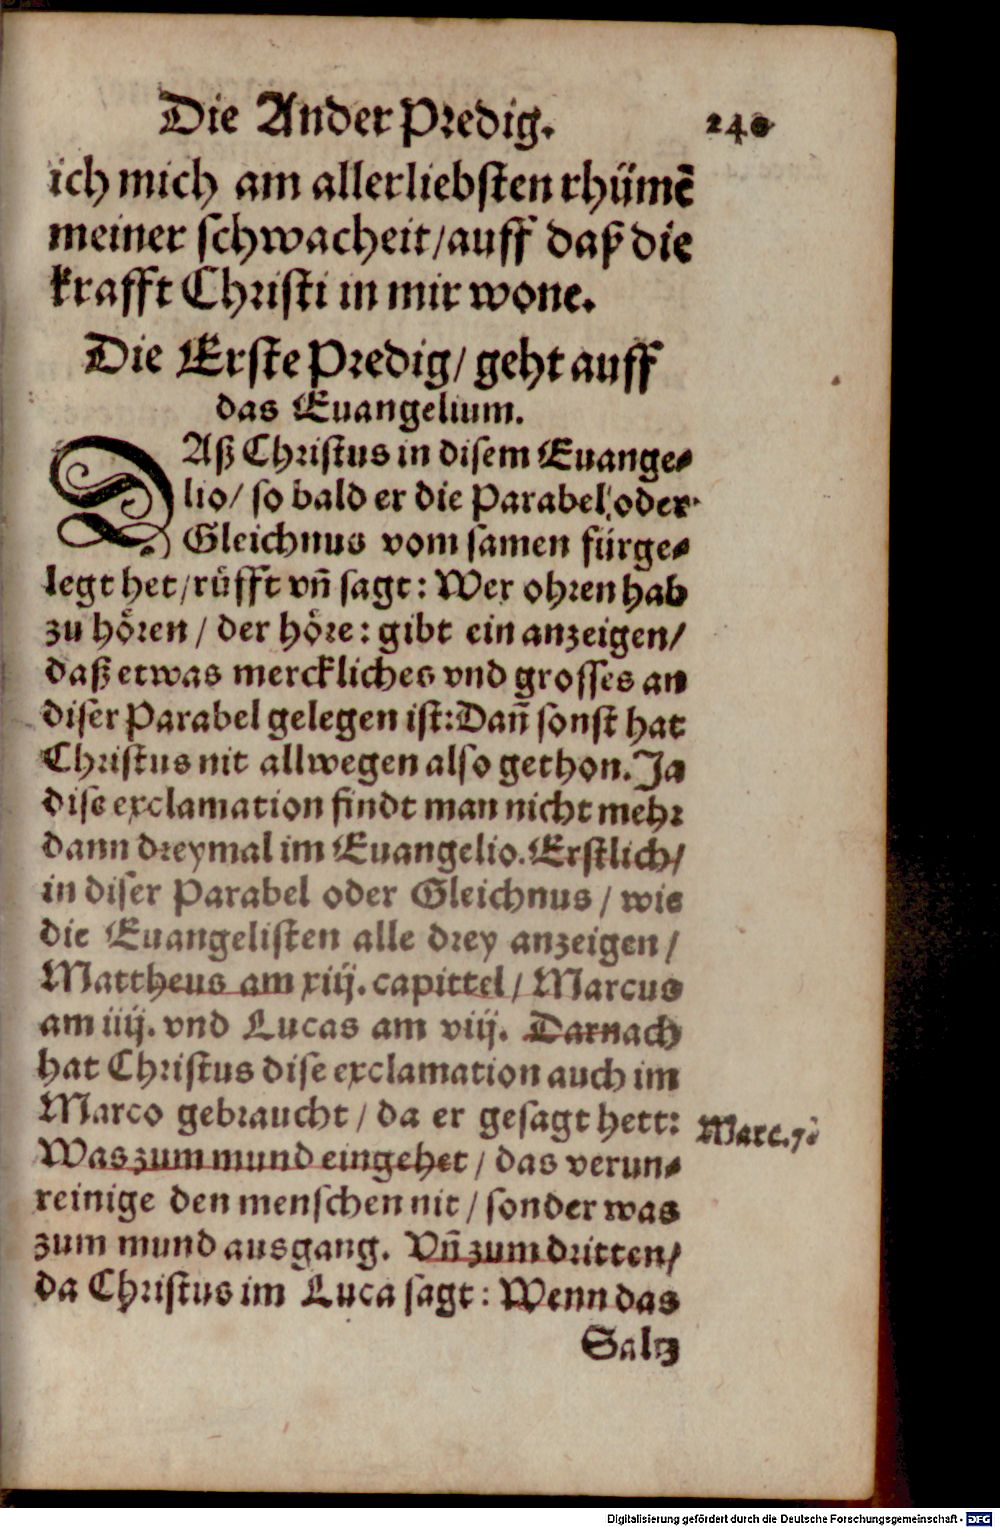 Die Ander Predig. 240
ich mich am allerliebsten rhümē
meiner schwacheit/auff daß die
krafft Christi in mir wone.
Die Erste Predig/ geht auff
das Euangelium.
DAß Christus in disem Euange-
lio/ so bald er die Parabel oder
Gleichnus vom samen fürge-
legt het/rüfft vñ sagt: Wer ohren hab
zu hören / der höre: gibt ein anzeigen/
daß etwas merckliches vnd grosses an
diser Parabel gelegen ist: Dañ sonst hat
Christus nit allwegen also gethon. Ja
dise exclamation findt man nicht mehr
dann dreymal im Euangelio. Erstlich/
in diser Parabel oder Gleichnus / wie
die Euangelisten alle drey anzeigen/
Mattheus am xiij. capittel/ Marcus
am iiij. vnd Lucas am viij. Darnach
hat Christus dise exclamation auch im
Marco gebraucht / da er gesagt hett:
Marc.7.
Was zum mund eingehet / das verun-
reinige den menschen nit / sonder was
zum mund ausgang. Vñ zum dritten/
da Christus im Luca sagt: Wenn das
Saltz
Digitalisierung gefördert durch die Deutsche Forschungsgemeinschaft - DFG